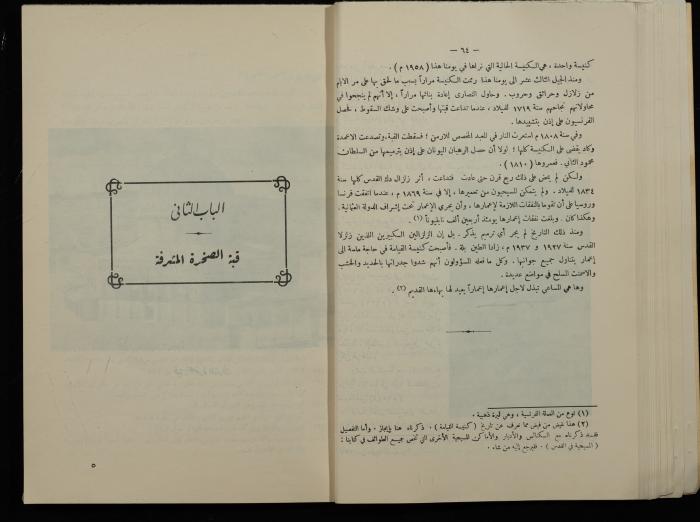 — ٦٤ —
كنيسة واحدة ، هي الكنيسة الحالية التي نراها في يومنا هذا ( ١٩٥٨ م ) .
ومنذ الجيل الثالث عشر الى يومنا هذا رممت الكنيسة مراراً بسبب ما لحق بها على مر الايام
من زلازل وحرائق وحروب . وحاول النصارى إعادة بنائها مراراً ، إلا أنهم لم ينجحوا في
محاولاتهم نجاحهم سنة ١٧١٩ للميلاد ، عندما تداعت قبتها وأصبحت على وشك السقوط ، فحصل
الفرنسيون على إذن بتشييدها .
وفي سنة ١٨٠٨ م استعرت النار في المعبد المخصص للارمن ؛ فسقطت القبة . وتصدعت الاعمدة
وكاد يقضى على الكنيسة كلها ؛ لولا أن حصل الرهبان اليونان على إذن بترميمها من السلطان
محمود الثاني . فعمروها ( ١٨١٠ ) .
ولكن لم يمض على ذلك ربع قرن حتى عادت فتداعت ، أثر زلزال دك القدس كلها سنة
١٨٣٤ للميلاد . ولم يتمكن المسيحيون من تعميرها ، إلا في سنة ١٨٦٩ م ، عندما اتفقت فرنسا
وروسيا على أن تقوما بالنفقات اللازمة لإعمارها ، وأن يجري الإعمار تحت إشراف الدولة العثمانية .
وهكذا كان . وبلغت نفقات إعمارها يومئذ أربعين ألف نابليوناً (١) .
ومنذ ذلك التاريخ لم يجر أي ترميم يذكر . بل إن الزلزالين الكبيرين اللذين زلزلا
القدس سنة ١٩٢٧ و ١٩٣٧ م ، زادا الطين بلة . فأصبحت كنيسة القيامة في حاجة ماسة الى
إعمار يتناول جميع جوانبها . وكل ما فعله المسؤولون أنهم شدوا جدرانها بالحديد والخشب
والاسمنت المسلح في مواضع عديدة .
وها هي المساعي تبذل لاجل إعمارها إعماراً يعيد لها بهاءها القديم (٢) .
(١) نوع من العملة الفرنسية ، وهي ليرة ذهبية .
(٢) هذا غيض من فيض مما نعرف عن تاريخ ( كنيسة القيامة ) . ذكرناه هنا بإيجاز . وأما التفصيل
فقد ذكرناه مع الكنائس والأديار والأماكن المسيحية الأخرى التي تخص جميع الطوائف في كتابنا :
( المسيحية في القدس ) . فليرجع إليه من شاء .
الباب الثاني
قبة الصخرة المشرفة
٥